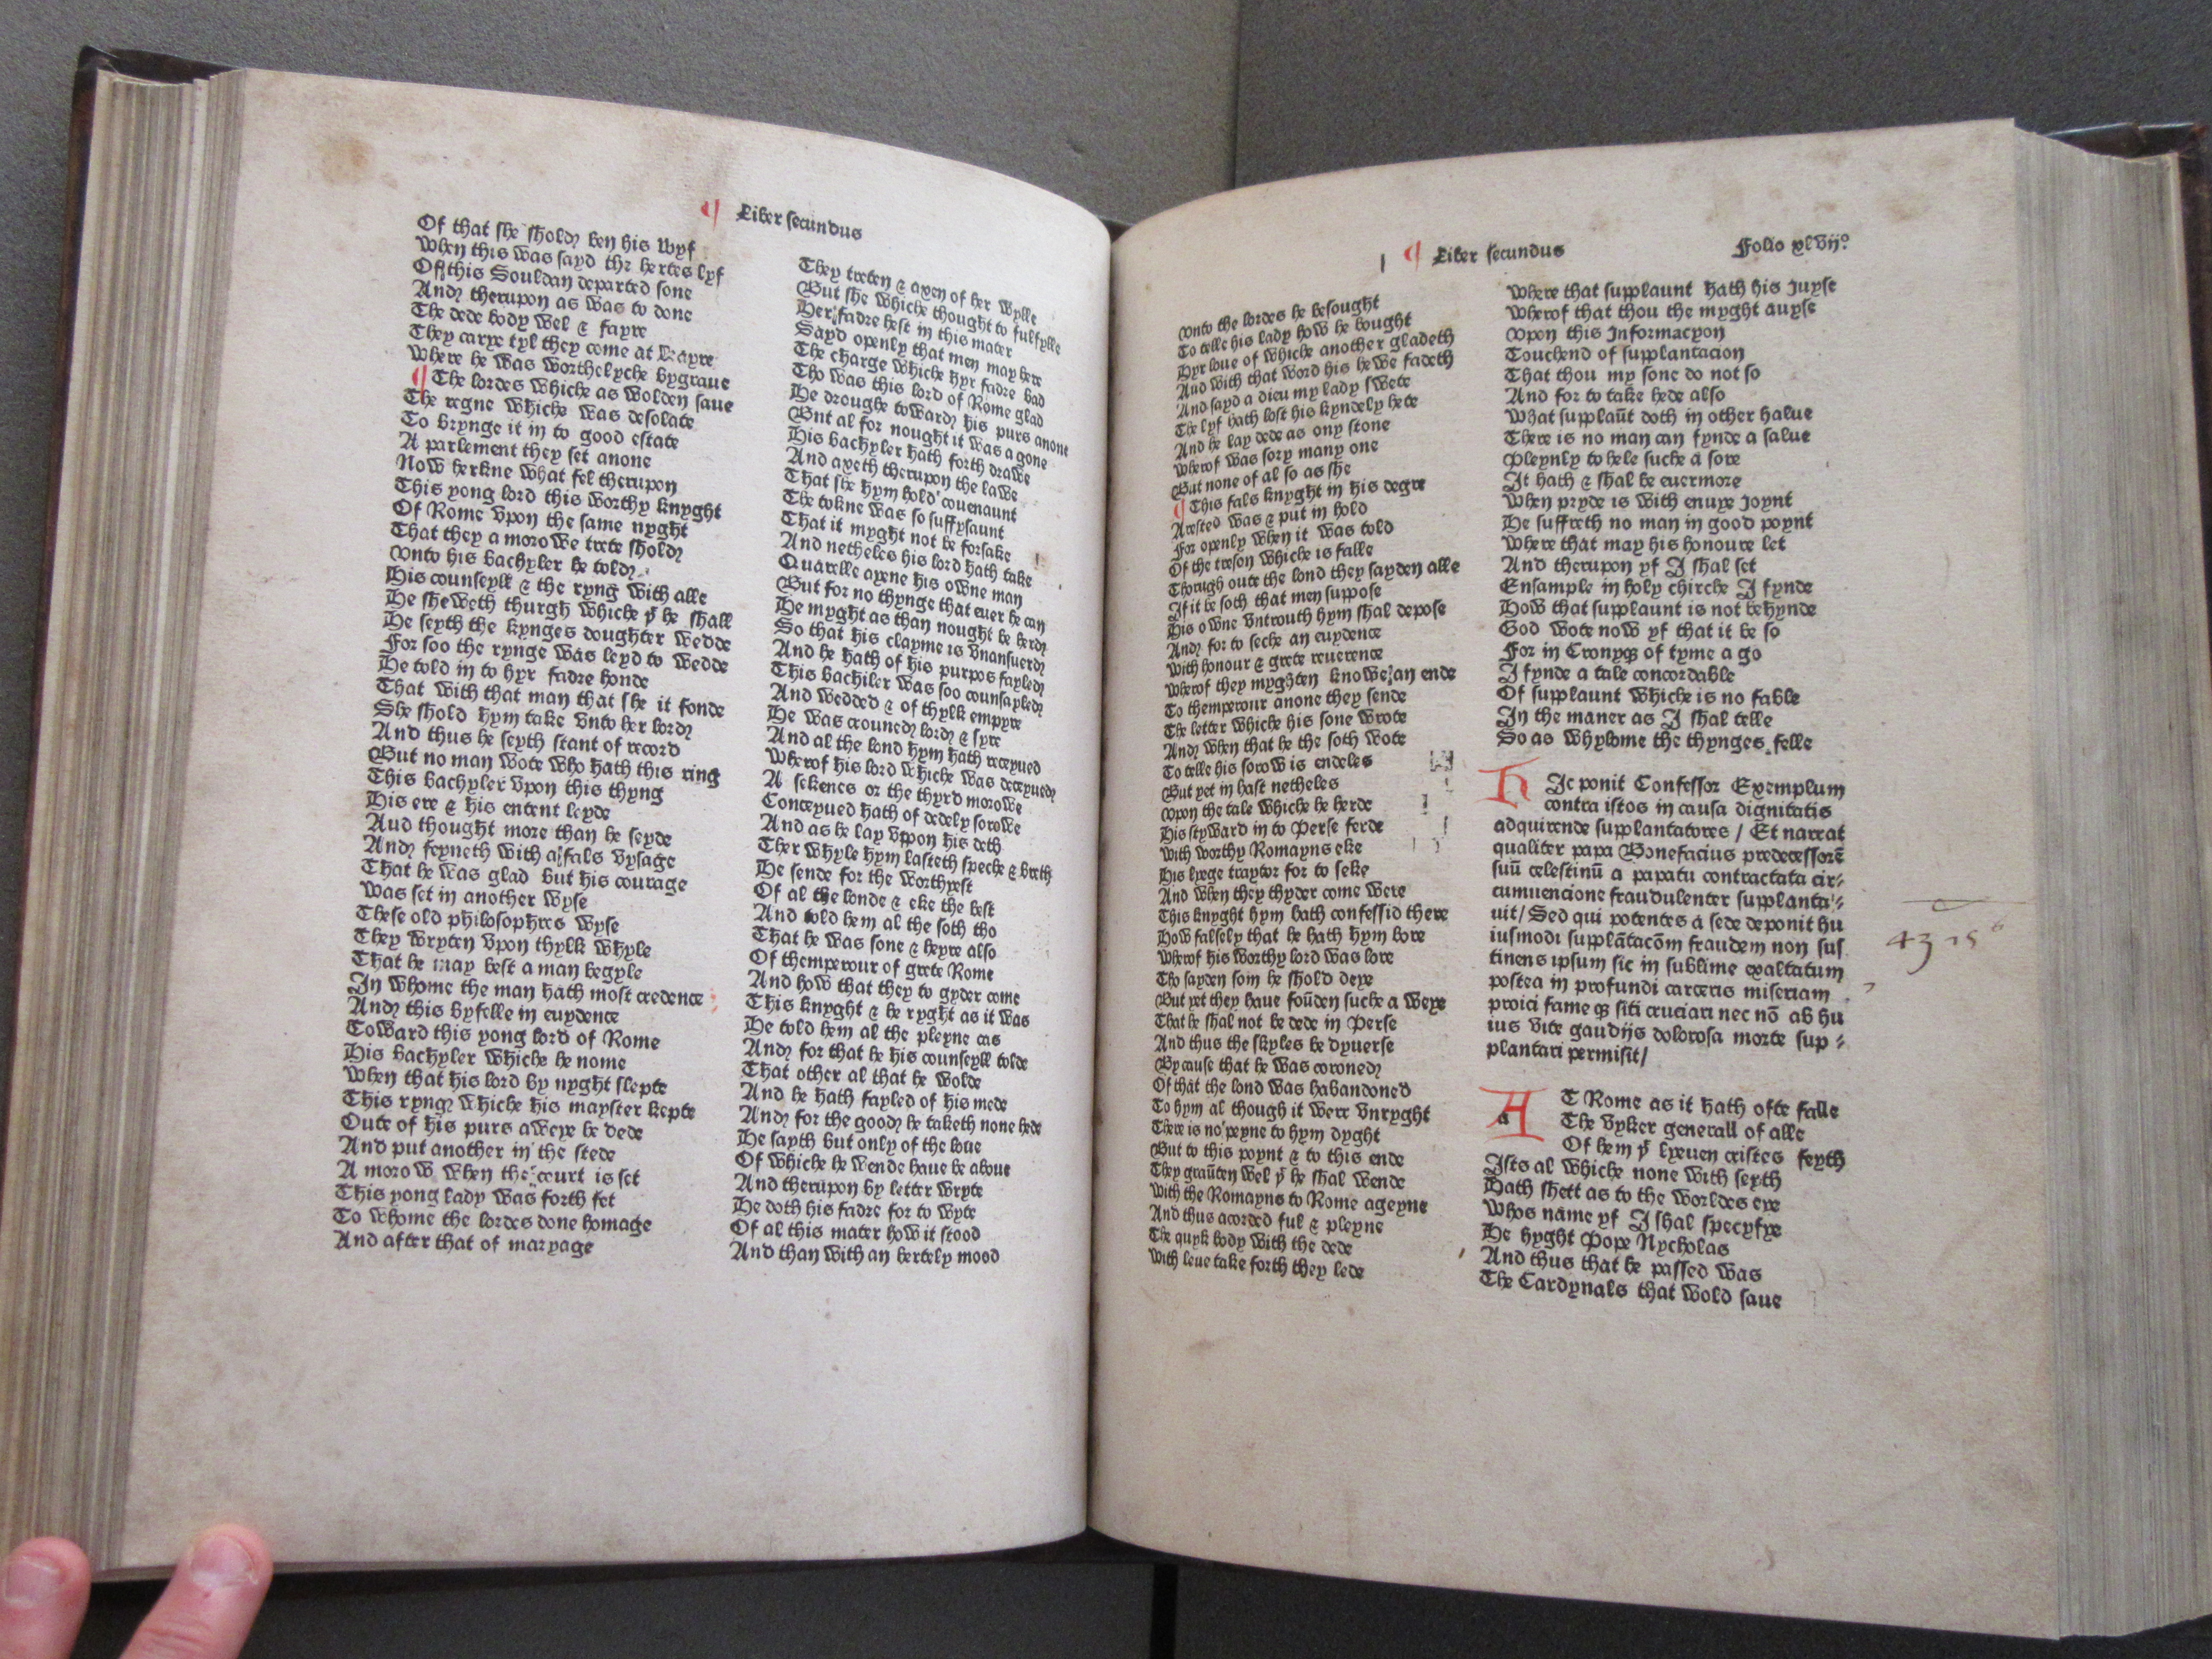 ¶ Liber secundus
Of that she shold ben his wyf
When this was sayd the hertes lyf
Of this Souldan departed sone
And therupon as was to done
The dede body wel & fayre
They carye tyl they come at kayre
Where he was worthelyche bygraue
¶ The lordes whiche as wolden saue
The regne whiche was desolate
To brynge it in to good estate
A parlement they set anone
Now herkne what fel therupon
This yong lord this worthy knyght
Of Rome vpon the same nyght
That they a morowe trete shold
Vnto his bachyler he told
His counseyll & the ryng with alle
He sheweth thurgh whiche yͭ he shall
He seyth the kynges doughter wedde
For soo the rynge was leyd to wedde
He told in to hyr fadre honde
That with that man that she it fonde
She shold hym take vnto her lord
And thus he seyth stant of record
But no man wote who hath this ring
This bachyler vpon this thyng
His ere & his entent leyde
Aud thought more than he seyde
And feyneth with a fals vysage
That he was glad but his courage
Was set in another wyse
These old philosophres wyse
They wryten vpon thylk whyle
That he may best a man begyle
In whome the man hath most credence
And this byfelle in euydence
Toward this yong lord of Rome
His bachyler whiche he nome
When that his lord by nyght slepte
This ryng whiche his mayster kepte
Oute of his purs aweye he dede
And put another in the stede
A morow when the court is set
This yong lady was forth fet
To whome the lordes done homage
And after that of maryage
They treten & axen of her wylle
But she whiche thought to fulfylle
Her fadre hest in this mater
Sayd openly that men may here
The charge whiche hyr fadre bad
Tho was this lord of Rome glad
He droughe toward his purs anone
But al for nought it was a gone
His bachyler hath forth drawe
And axeth therupon the lawe
That she hym hold couenaunt
The tokne was so suffysaunt
That it myght not be forsake
And netheles his lord hath take
Quarelle ayene his owne man
But for no thynge that euer he can
He myght as than nought be herd
So that his clayme is vnansuerd
And he hath of his purpos fayled
This bachiler was soo counsayled
And wedded & of thylk empyre
He was crouned lord & syre
And al the lond hym hath receyued
Wherof his lord whiche was deceyued
A sekenes or the thyrd morowe
Conceyued hath of dedely sorowe
And as he lay vpon his deth
Ther whyle hym lasteth speche & breth
He sende for the worthyest
Of al the londe & eke the best
And told hem al the soth tho
That he was sone & heyre also
Of themperour of grete Rome
And how that they to gyder come
This knyght & he ryght as it was
He told hem al the pleyne cas
And for that he his counseyll tolde
That other al that he wolde
And he hath fayled of his mede
And for the good he taketh none hede
He sayth but only of the loue
Of whiche he wende haue be aboue
And therupon by letter wryte
He doth his fadre for to wyte
Of al this mater how it stood
And than with an hertely mood
¶ Liber secundus Folio xlvijº
Vnto the lordes he besought
To telle his lady how he bought
Hyr loue of whiche another gladeth
And with that word his hewe fadeth
And sayd a dieu my lady swete
The lyf hath lost his kyndely hete
And he lay dede as ony stone
Wherof was sory many one
But none of al so as she
¶ This fals knyght in his degre
Arested was & put in hold
For openly when it was told
Of the treson whiche is falle
Thorugh oute the lond they sayden alle
If it be soth that men suppose
His owne vntrouth hym shal depose
And for to seche an euydence
With honour & grete reuerence
Wherof they myghten knowe an ende
To themperour anone they sende
The letter whiche his sone wrote
And when that he the soth wote
To telle his sorow is endeles
But yet in hast netheles
Vpon the tale whiche he herde
His styward in to Perse ferde
With worthy Romayns eke
His lyege traytor for to seke
And when they thyder come were
This knyght hym hath confessid there
How falsely that he hath hym bore
Wherof his worthy lord was lore
Tho sayden som he shold deye
But yet they haue foūden suche a weye
That he shal not be dede in Perse
And thus the skyles be dyuerse
By cause that he was coroned
Of that the lond was habandoned
To hym al though it were vnryght
There is no peyne to hym dyght
But to this poynt & to this ende
They graūten wel yͭ he shal wende
With the Romayns to Rome ageyne
And thus acorded ful & pleyne
The quyk body with the dede
With leue take forth they lede
Where that supplaunt hath his Juyse
Wherof that thou the myght auyse
Vpon this Informacyon
Touchend of supplantacion
That thou my sone do not so
And for to take hede also
What supplaūt doth in other halue
There is no man can fynde a salue
Pleynly to hele suche a sore
It hath & shal be euermore
When pryde is with enuye Joynt
He suffreth no man in good poynt
Where that may his honoure let
And therupon yf I shal set
Ensample in holy chirche I fynde
How that supplaunt is not behynde
God wote now yf that it be so
For in Cronyqȝ of tyme a go
I fynde a tale concordable
Of supplaunt whiche is no fable
In the maner as I shal telle
So as whylome the thynges felle
HIc ponit Confessor Exemplum
contra istos in causa dignitatis
adquirende supplantatores / Et narrat
qualiter papa Bonefacius predecessorē
suū celestinū a papatu contractata cir⸗
cumuencione fraudulenter supplanta⸗
uit/ Sed qui potentes a sede deponit hu
iusmodi supplātacōm fraudem non sus
tinens ipsum sic in sublime exaltatum
postea in profundi carceris miseriam
proici fame qȝ siti cruciari nec nō ab hu
ius vite gaudijs dolorosa morte sup⸗
plantari permisit/
4315
AT Rome as it hath ofte falle
The vyker generall of alle
Of hem yͭ lyeuen cristes feyth
Ists al whiche none with seyth
Hath shett as to the worldes eye
Whos name yf I shal specyfye
He hyght Pope Nycholas
And thus that he passed was
The Cardynals that wold saue